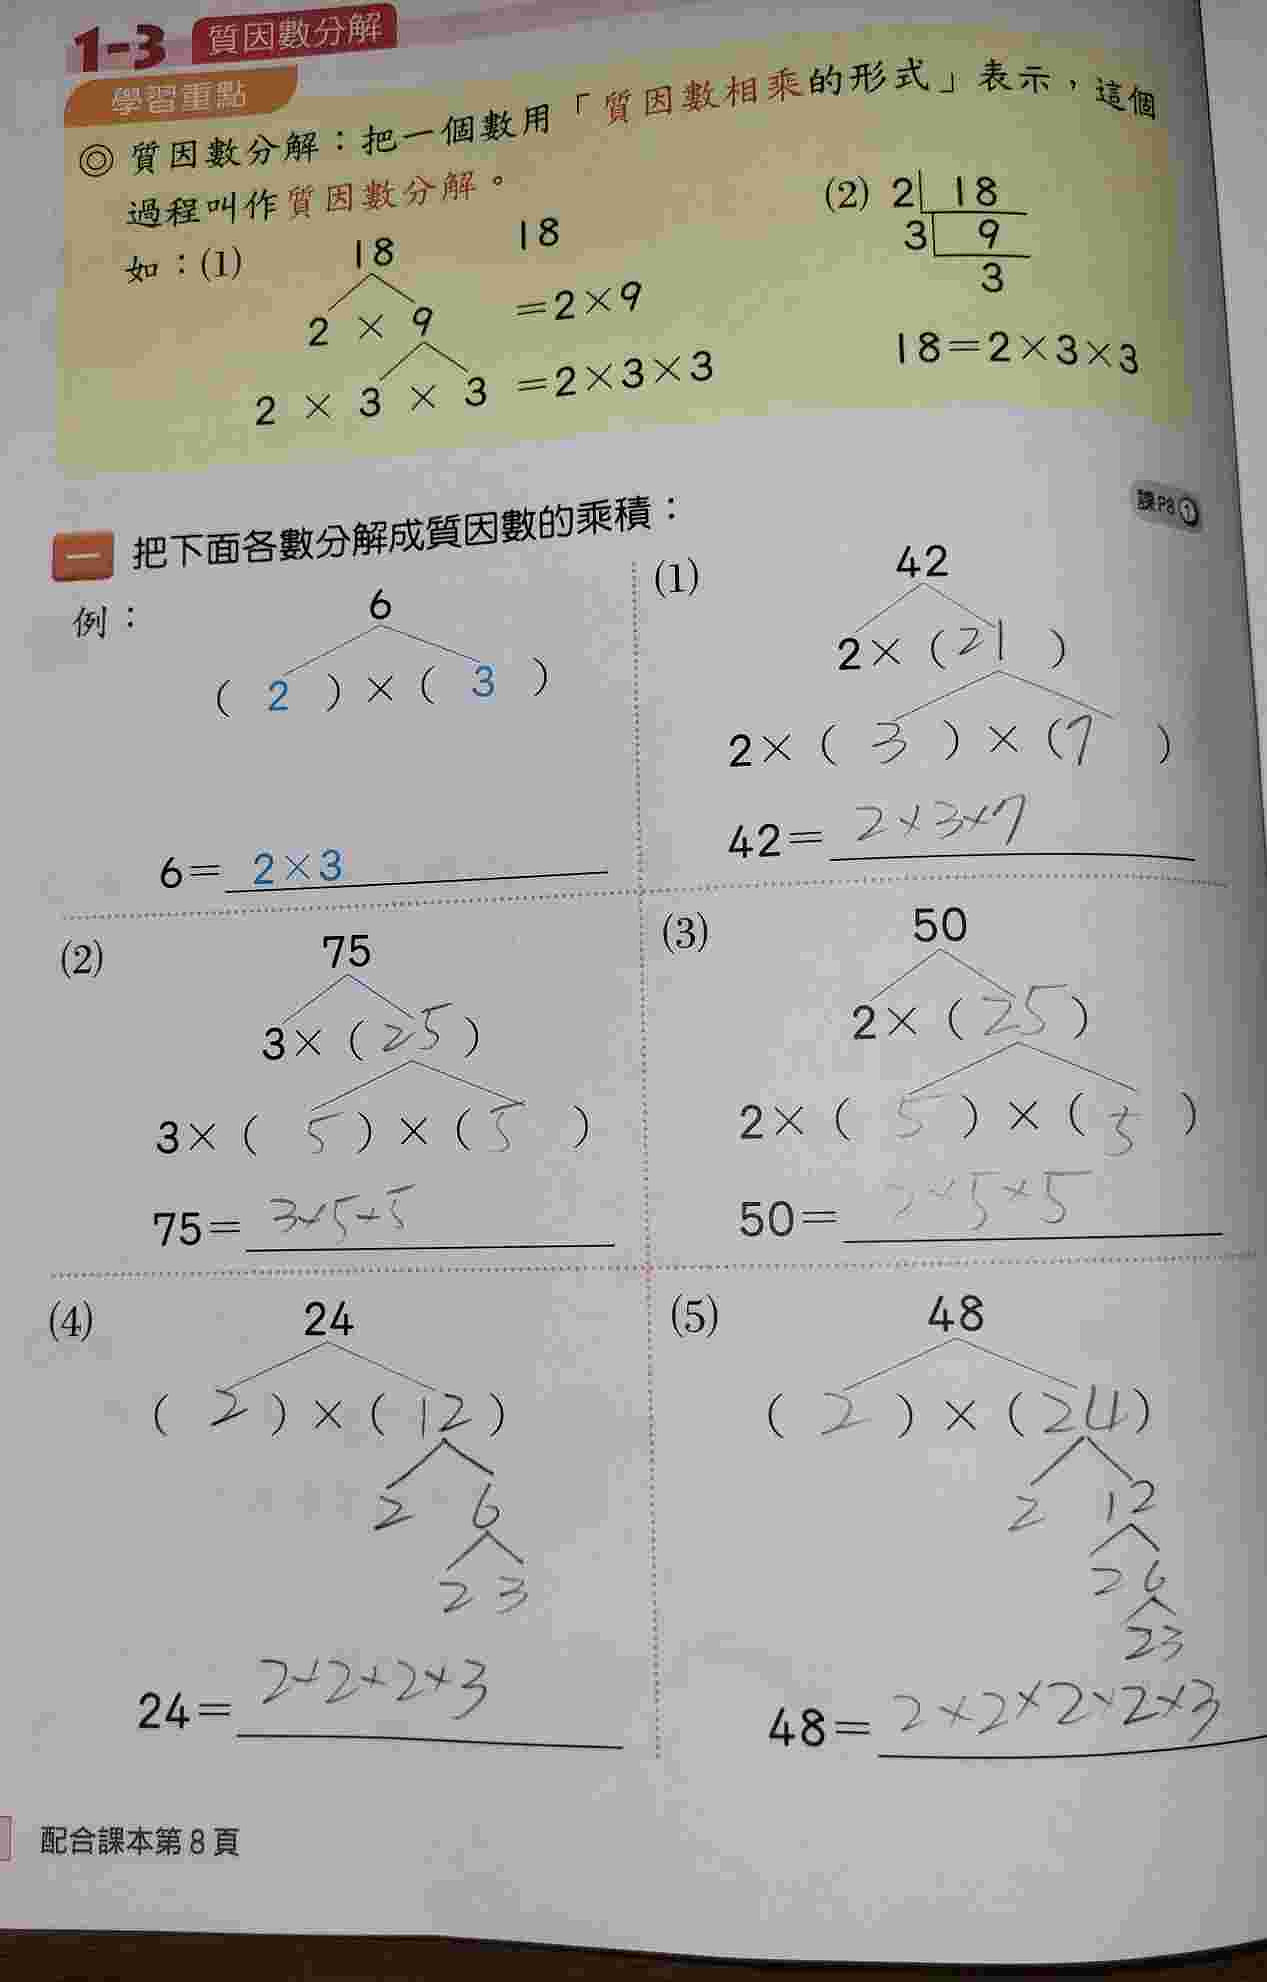 1-3 質因數分解
學習重點
◎ 質因數分解：把一個數用「質因數相乘的形式」表示，這個
過程叫作質因數分解。
如：(1) 18
2 × 9
2 × 3 × 3
18
=2×9
=2×3×3
(2) 2 18
3 9
3
18=2×3×3
一 把下面各數分解成質因數的乘積：
課P8①
例：
6
( 2 )×( 3 )
6= 2×3
(1)
42
2×( 21 )
2×( 3 )×( 7 )
42= 2×3×7
(2)
75
3×( 25 )
3×( 5 )×( 5 )
75= 3×5×5
(3)
50
2×( 25 )
2×( 5 )×( 5 )
50= 2×5×5
(4)
24
( 2 )×( 12 )
2 6
2 3
24= 2×2×2×3
(5)
48
( 2 )×( 24 )
2 12
2 6
2 3
48= 2×2×2×2×3
配合課本第8頁